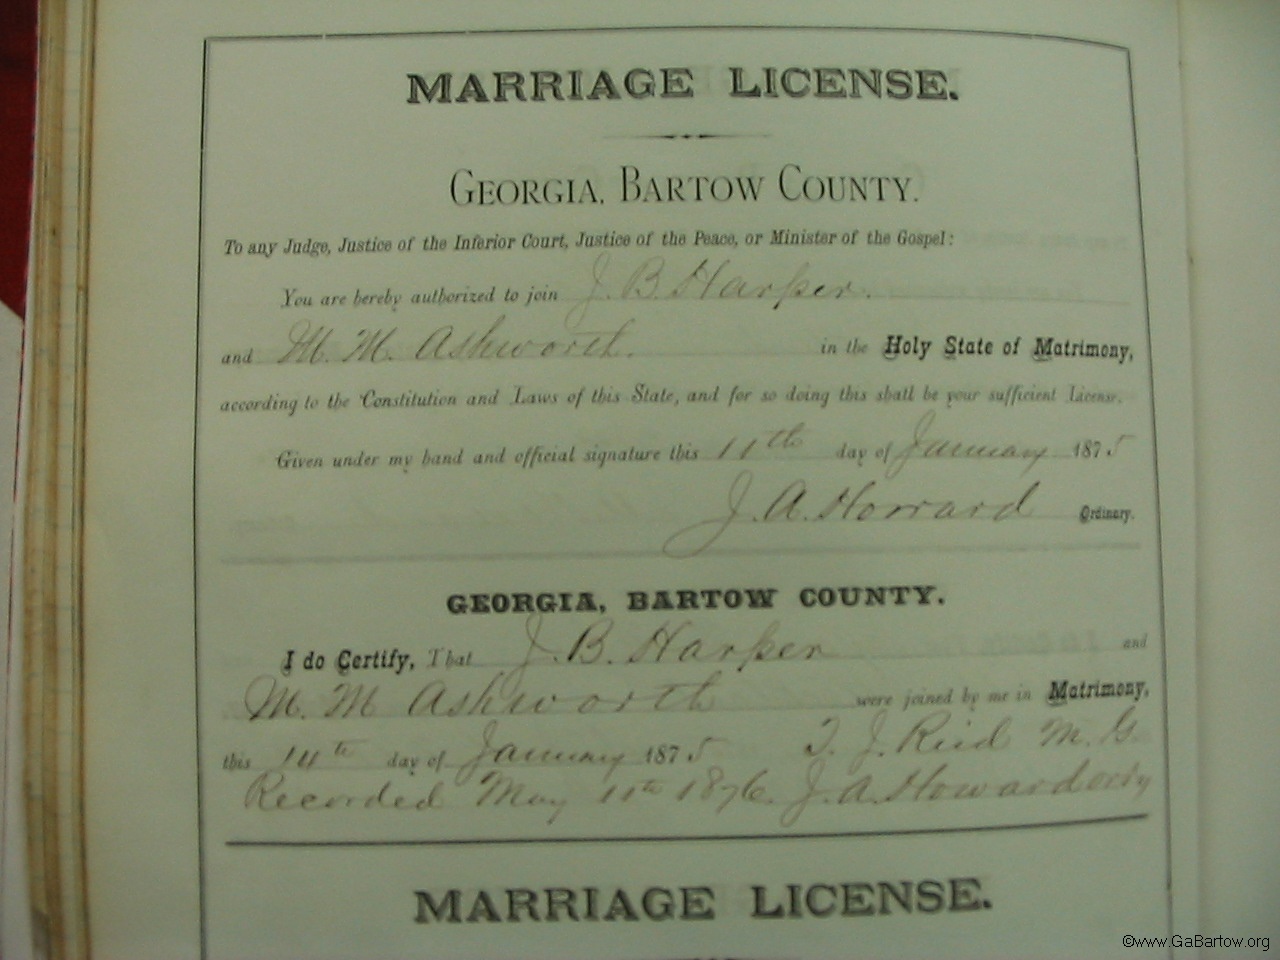 MARRIAGE LICENSE.
GEORGIA, BARTOW COUNTY.
To any Judge, Justice of the Inferior Court, Justice of the Peace, or Minister of the Gospel:
You are hereby authorized to join J. B. Harper.
and M. M. Ashworth. in the Holy State of Matrimony,
according to the Constitution and Laws of this State, and for so doing this shall be your sufficient License.
Given under my hand and official signature this 11th day of January 1875
J. A. Howard Ordinary.
GEORGIA, BARTOW COUNTY.
I do Certify, That J. B. Harper and
M. M Ashworth were joined by me in Matrimony,
this 14th day of January 1875 T. J. Reid M. G.
Recorded May 11th 1876. J. A. Howard ordy
MARRIAGE LICENSE.
©www.GaBartow.org